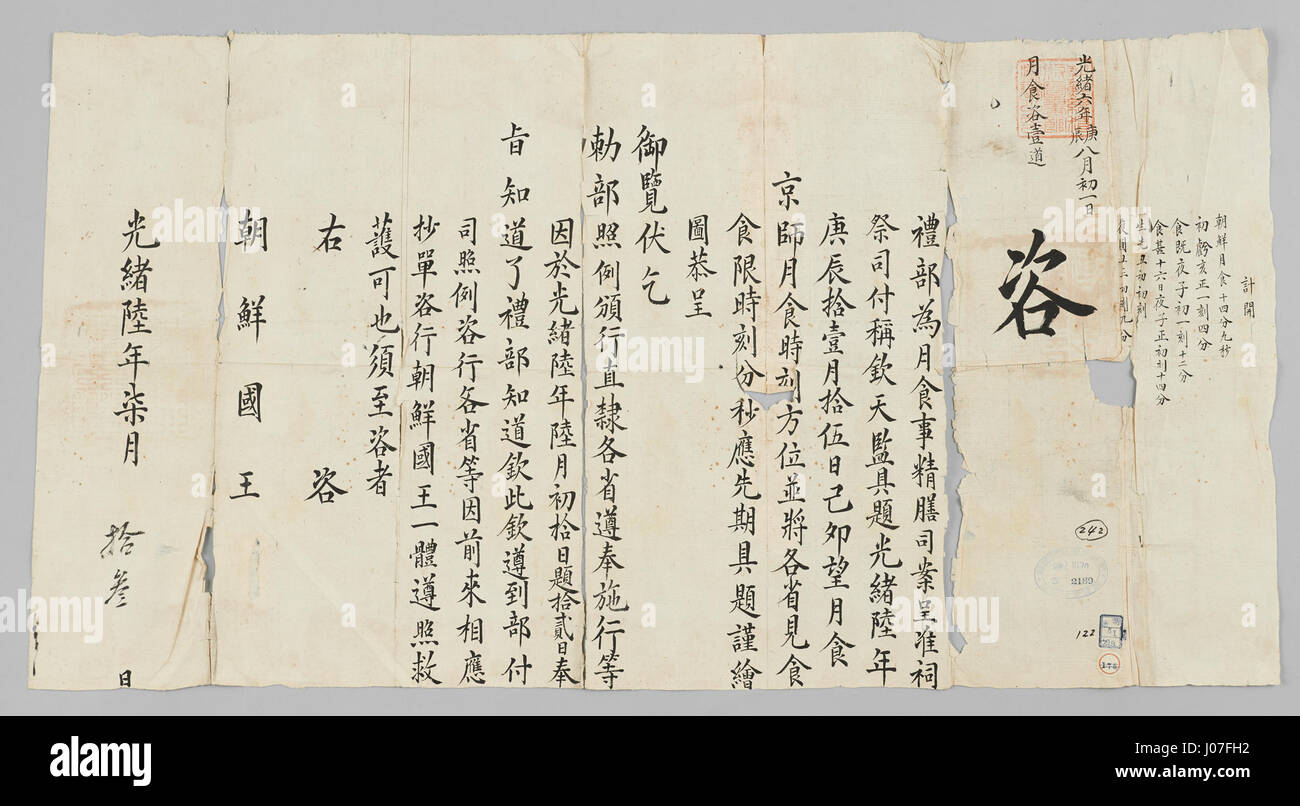 計開
朝鮮月食十四分九秒
初虧亥正一刻四分
食既夜子初一刻十二分
食甚十六日夜子正初刻十四分
生光丑初初刻
光緒六年庚辰八月初一日
月食咨壹道
咨
禮部為月食事精膳司案呈准祠
祭司付稱欽天監具題光緒陸年
庚辰拾壹月拾伍日己卯望月食
京師月食時刻方位並將各省見食
食限時刻分秒應先期具題謹繪
圖恭呈
御覽伏乞
勅部照例頒行直隸各省遵奉施行等
因於光緒陸年陸月初拾日題拾貳日奉
旨知道了禮部知道欽此欽遵到部付
司照例咨行各省等因前來相應
抄單咨行朝鮮國王一體遵照救
護可也須至咨者
右咨
朝鮮國王
光緒陸年柒月拾叁日
242
2189
122
176
alamy
J07FH2
www.alamy.com